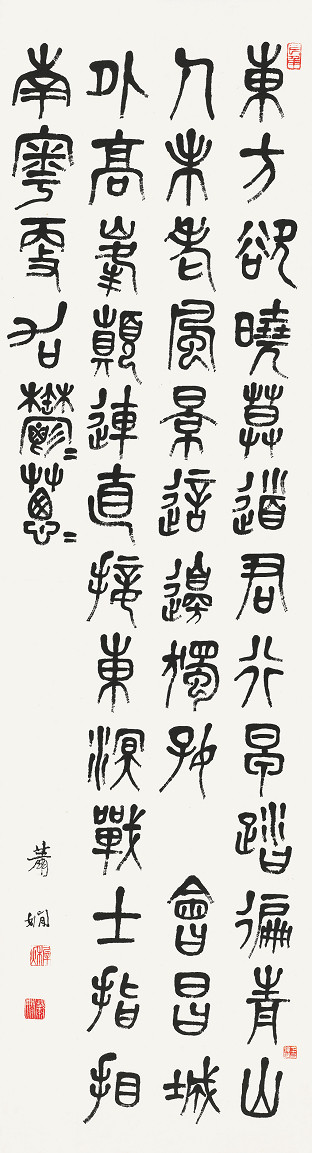 東方欲曉莫道君行早踏徧青山
人未老風景這邊獨好 會昌城
外高峯顛連直接東溟戰士指看
南粵更加鬱〻蔥〻
蕭嫺